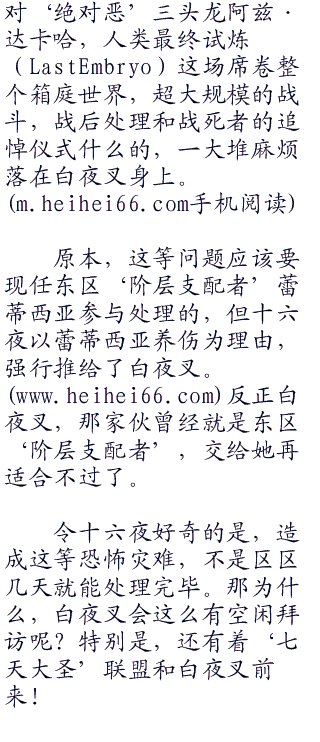 对‘绝对恶’三头龙阿兹·
达卡哈，人类最终试炼
（LastEmbryo）这场席卷整
个箱庭世界，超大规模的战
斗，战后处理和战死者的追
悼仪式什么的，一大堆麻烦
落在白夜叉身上。
(m.heihei66.com手机阅读)
原本，这等问题应该要
现任东区‘阶层支配者’蕾
蒂西亚参与处理的，但十六
夜以蕾蒂西亚养伤为理由，
强行推给了白夜叉。
(www.heihei66.com)反正白
夜叉，那家伙曾经就是东区
‘阶层支配者’，交给她再
适合不过了。
令十六夜好奇的是，造
成这等恐怖灾难，不是区区
几天就能处理完毕。那为什
么，白夜叉会这么有空闲拜
访呢？特别是，还有着‘七
天大圣’联盟和白夜叉前
来！